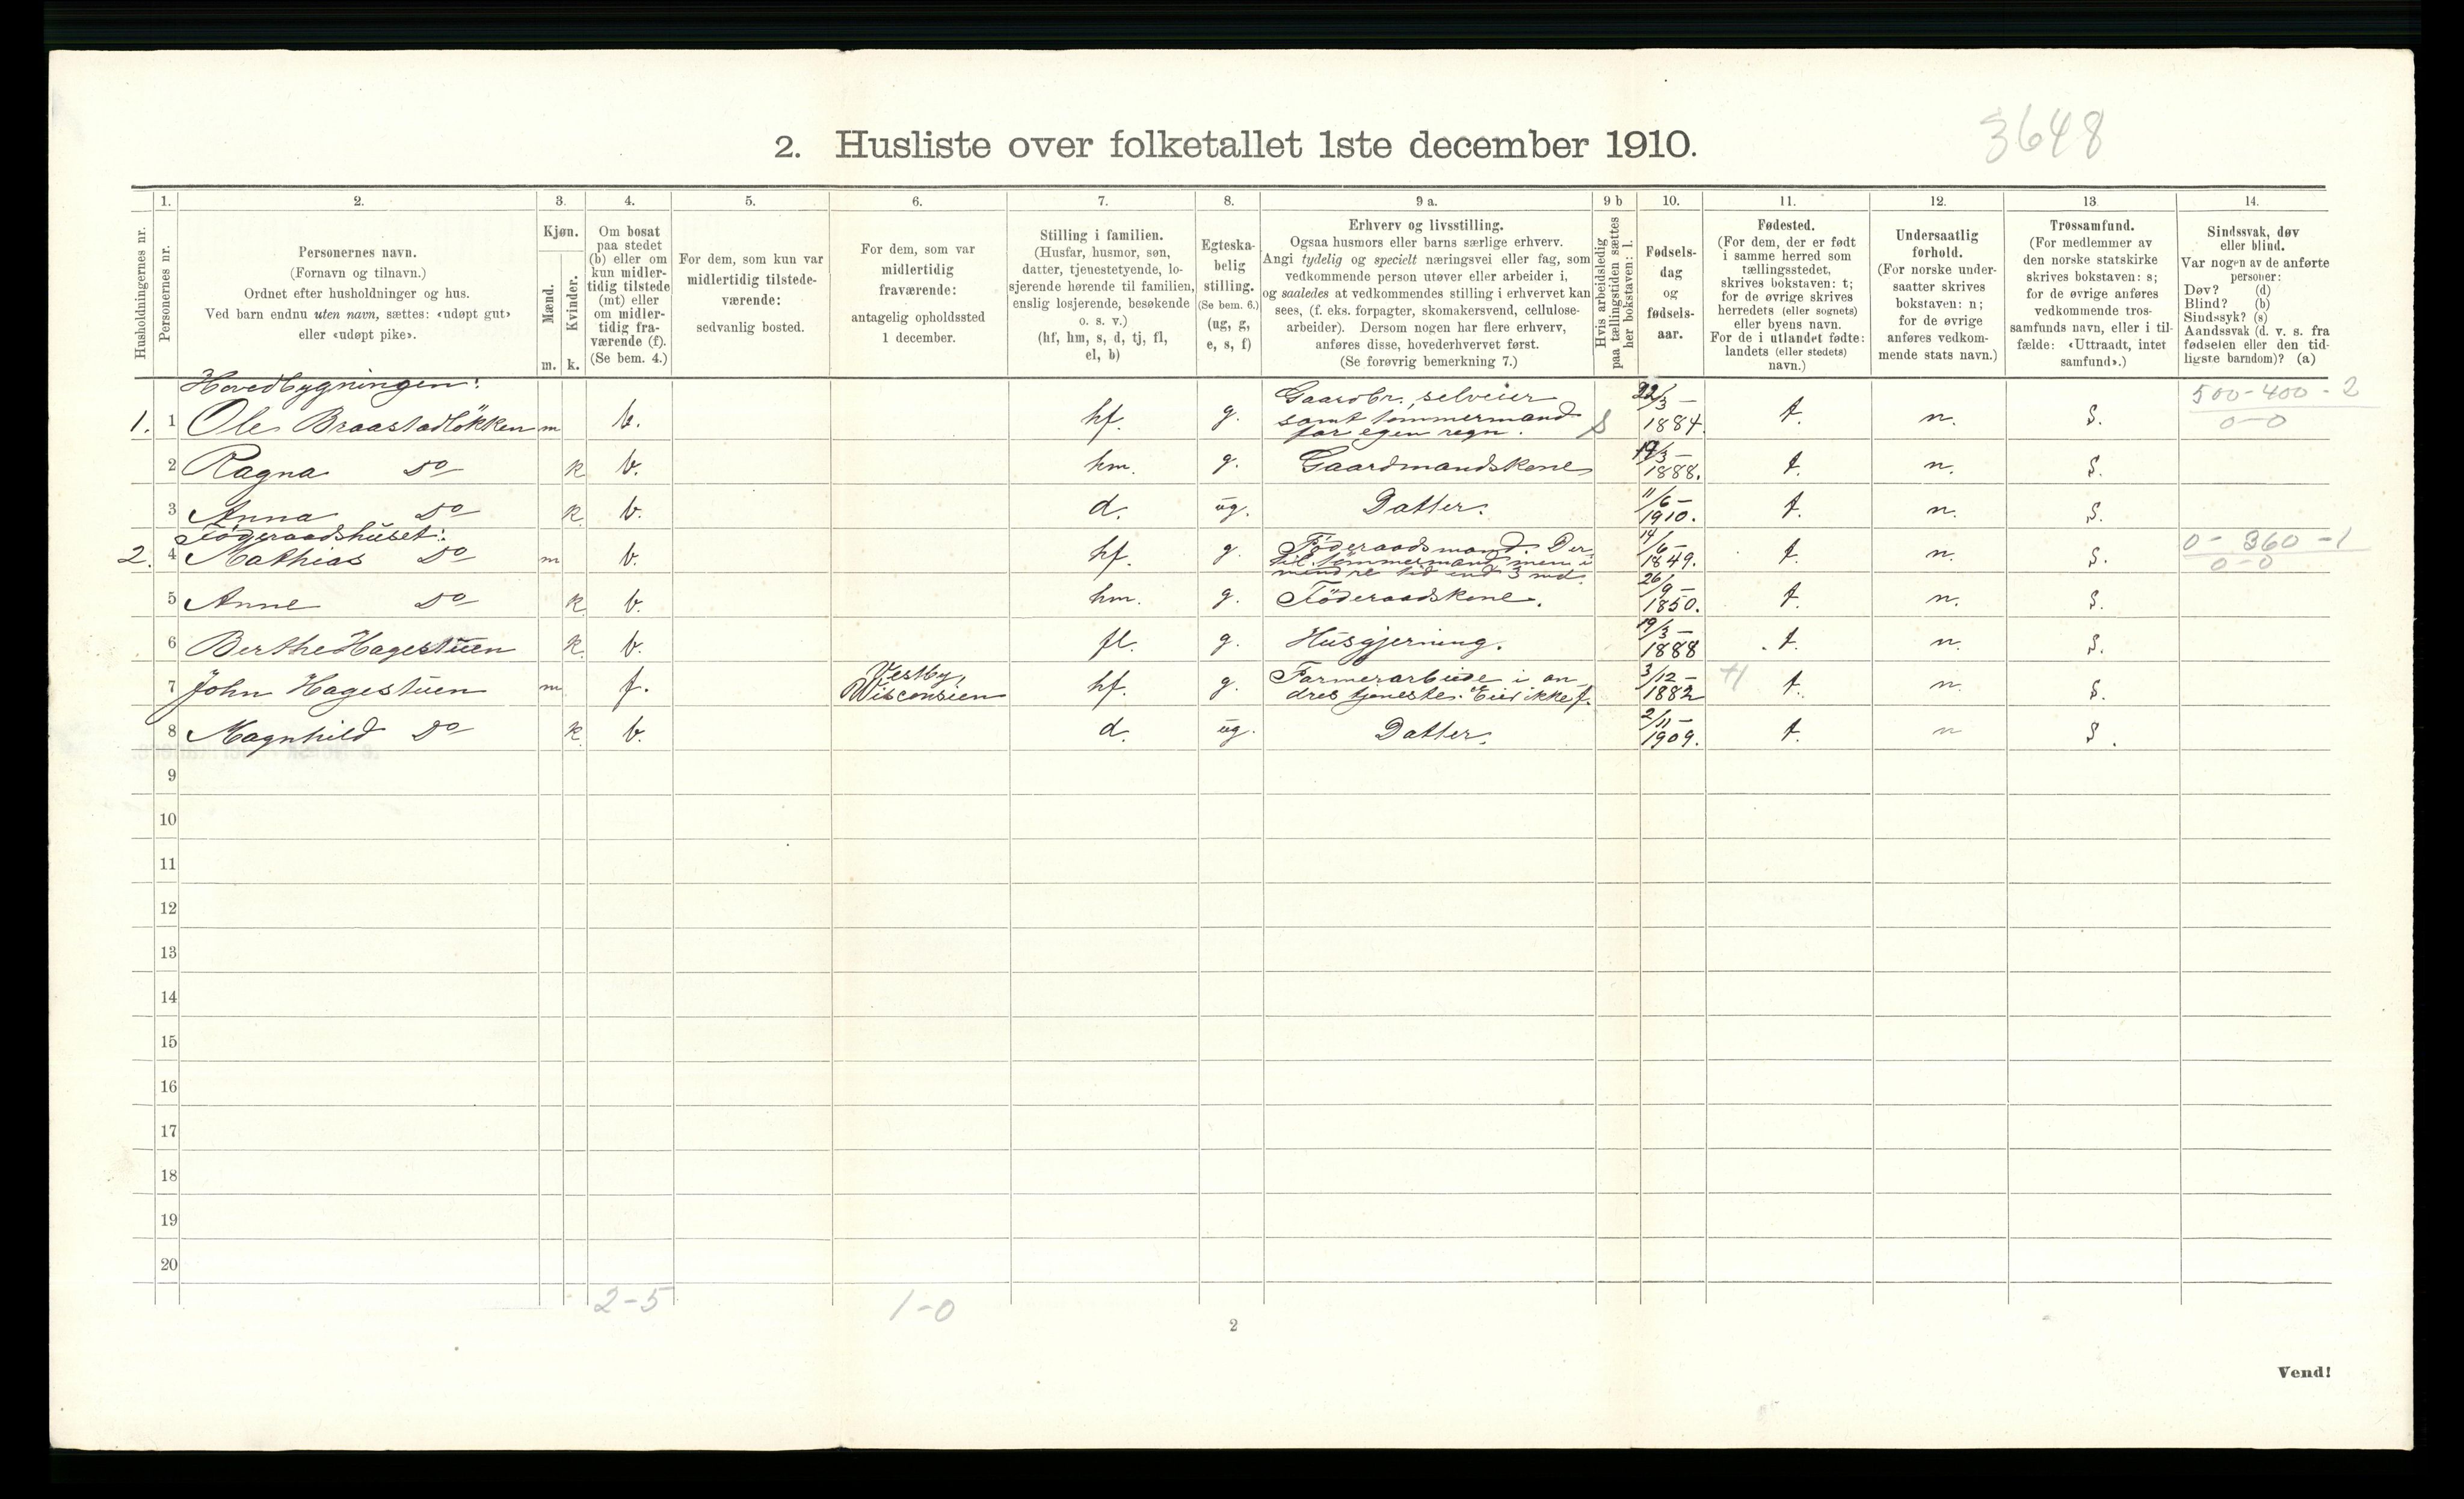 3648
2. Husliste over folketallet 1ste december 1910.
1. 2. 3. 4. 5. 6. 7. 8. 9 a. 9 b 10. 11. 12. 13. 14.
Husholdningernes nr.
Personernes nr.
Personernes navn.
(Fornavn og tilnavn.)
Ordnet efter husholdninger og hus.
Ved barn endnu uten navn, sættes: «udøpt gut»
eller «udøpt pike».
Kjøn.
Mænd.
Kvinder.
m. k.
Om bosat
paa stedet
(b) eller om
kun midler-
tidig tilstede
(mt) eller
om midler-
tidig fra-
værende (f).
(Se bem. 4.)
For dem, som kun var
midlertidig tilstede-
værende:
sedvanlig bosted.
For dem, som var
midlertidig
fraværende:
antagelig opholdssted
1 december.
Stilling i familien.
(Husfar, husmor, søn,
datter, tjenestetyende, lo-
sjerende hørende til familien,
enslig losjerende, besøkende
o. s. v.)
(hf, hm, s, d, tj, fl,
el, b)
Egteska-
belig
stilling.
(Se bem. 6.)
(ug, g,
e, s, f)
Erhverv og livsstilling.
Ogsaa husmors eller barns særlige erhverv.
Angi tydelig og specielt næringsvei eller fag, som
vedkommende person utøver eller arbeider i,
og saaledes at vedkommendes stilling i erhvervet kan
sees, (f. eks. forpagter, skomakersvend, cellulose-
arbeider). Dersom nogen har flere erhverv,
anføres disse, hovederhvervet først.
(Se forøvrig bemerkning 7.)
Hvis arbeidsledig
paa tællingstiden sættes
her bokstaven: l.
Fødsels-
dag
og
fødsels-
aar.
Fødested.
(For dem, der er født
i samme herred som
tællingsstedet,
skrives bokstaven: t;
for de øvrige skrives
herredets (eller sognets)
eller byens navn.
For de i utlandet fødte:
landets (eller stedets)
navn.)
Undersaatlig
forhold.
(For norske under-
saatter skrives
bokstaven: n;
for de øvrige
anføres vedkom-
mende stats navn.)
Trossamfund.
(For medlemmer av
den norske statskirke
skrives bokstaven: s;
for de øvrige anføres
vedkommende tros-
samfunds navn, eller i til-
fælde: «Uttraadt, intet
samfund».)
Sindssvak, døv
eller blind.
Var nogen av de anførte
personer:
Døv? (d)
Blind? (b)
Sindssyk? (s)
Aandssvak (d. v. s. fra
fødselen eller den tid-
ligste barndom)? (a)
Hovedbygningen:
1. 1 Ole Braastadløkken m b. hf. g. Gaardbr., selveier
samt tømmermand
for egen regn. 22/3 – 1884. t. n. s. 500-400-2
0-0
2 Ragna Do k b. hm. g. Gaardmandskone 19/3 – 1888. t. n. s.
3 Anna Do k b. d. ug. Datter. 11/6 – 1910. t. n. s.
Föderaadshuset:
2. 4 Mathias Do m b. hf. g. Föderaadsmand. Der-
til tømmermand men i
mindre tid end 3 md. 14/6 – 1849. t. n. s. 0-360-1
0-0
5 Anne Do k b. hm. g. Föderaadskone. 26/9 – 1850. t. n. s.
6 Berthe Hagestuen k. b. fl. g. Husgjerning. 19/3 – 1888 t. n. s.
7 John Hagestuen m f. Vestby,
Wisconsien hf. g. Farmerarbeide i an-
dres tjeneste. Eier ikke f. 3/12 – 1882 t. n. s.
8 Magnhild Do k b. d. ug. Datter. 2/11 – 1909. t. n s.
9
10
11
12
13
14
15
16
17
18
19
20
2-5 1-0
2
Vend!